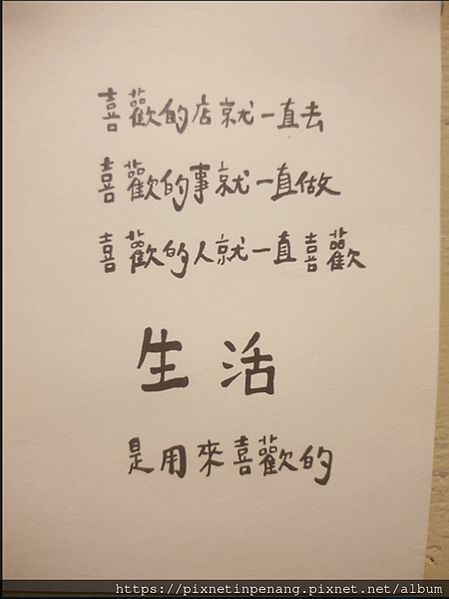 喜歡的店就一直去
喜歡的事就一直做
喜歡的人就一直喜歡
生活
是用來喜歡的
https://pixnetinpenang.pixnet.net/album